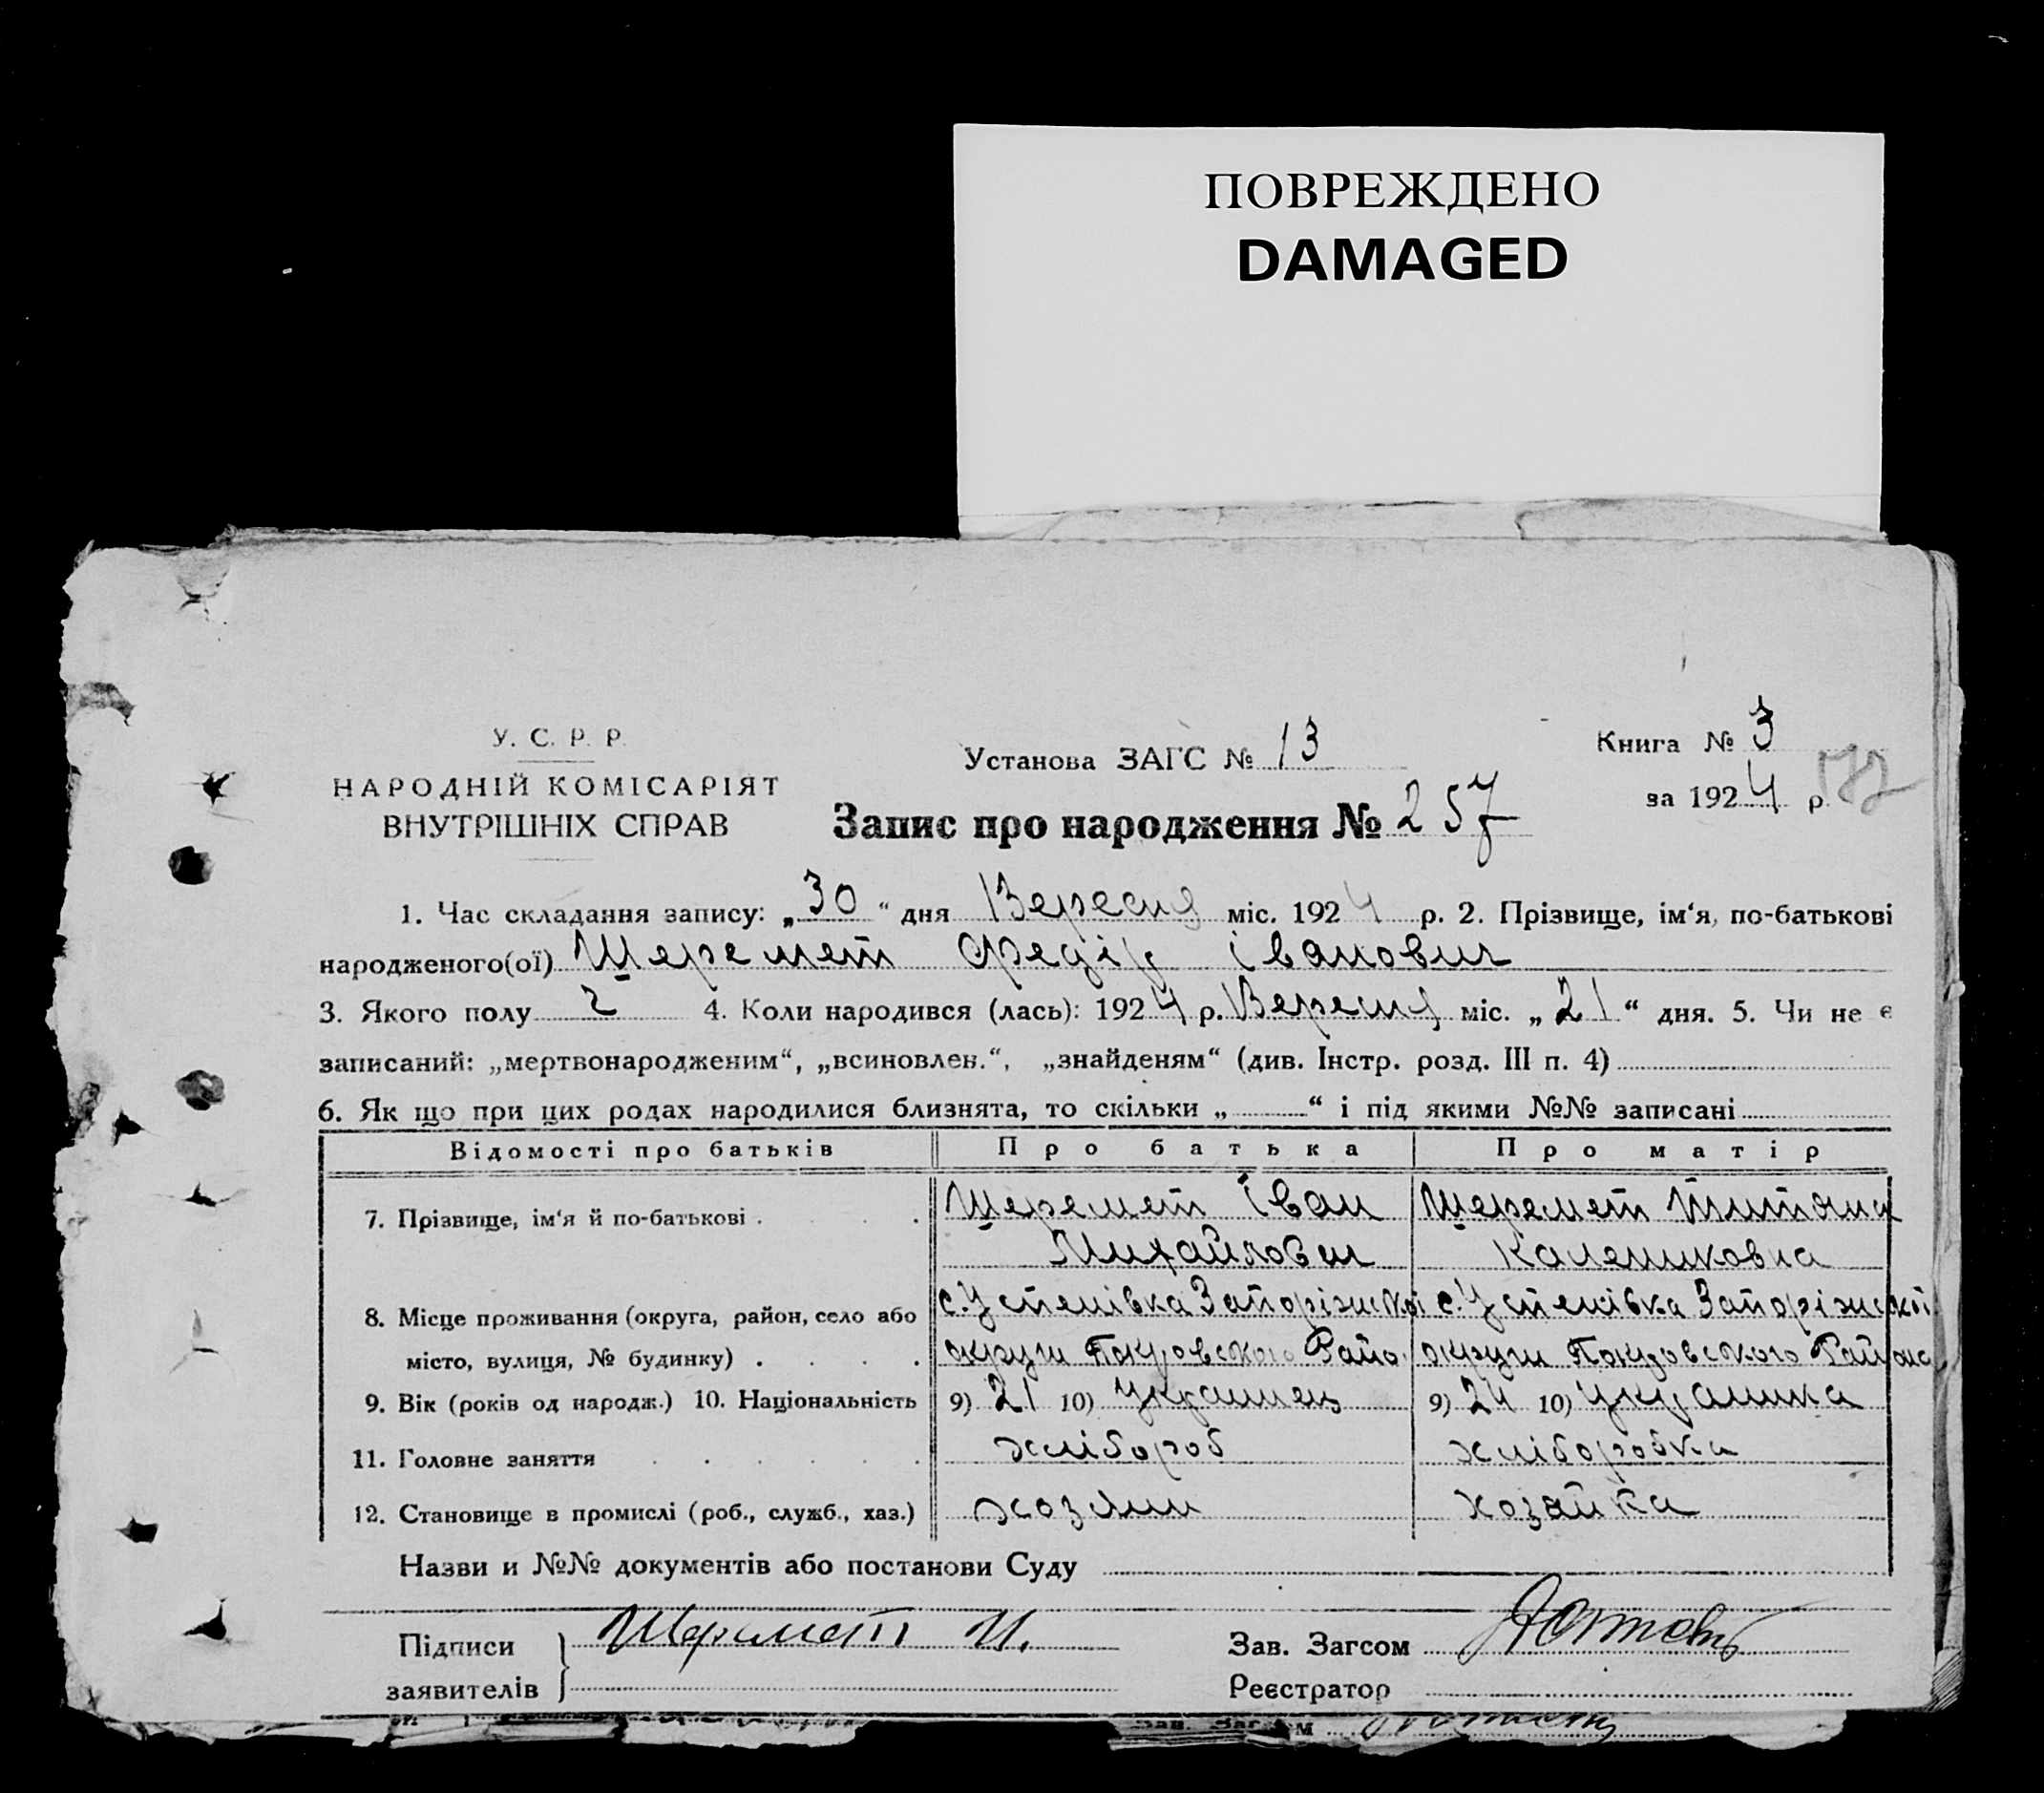 ПОВРЕЖДЕНО
DAMAGED
У. С. Р. Р.
НАРОДНІЙ КОМІСАРІЯТ
ВНУТРІШНІХ СПРАВ
Установа ЗАГС № 13
Запис про народження № 257
Книга № 3
за 1924 р.
1. Час складання запису: „30“ дня Вересня міс. 1924 р. 2. Прізвище, ім‘я, по-батькові
народженого(ої) Шеремет Федір Іванович
3. Якого полу ч 4. Коли народився (лась): 1924 р. Вересня міс. „21“ дня. 5. Чи не є
записаний: „мертвонародженим“, „всиновлен.“, „знайденям“ (див. Інстр. розд. III п. 4)
6. Як що при цих родах народилися близнята, то скільки „ “ і під якими №№ записані
Відомості про батьків Про батька Про матір
7. Прізвище, ім‘я й по-батькові . . . Шеремет Іван Шеремет
Михайлович
8. Місце проживання (округа, район, село або с. Успенівка Запоріжської с. Успенівка Запоріжської
місто, вулиця, № будинку) . . . . округи Покровського Райо. округи Покровського Района
9. Вік (років од народж.) 10. Національність 9) 21 10) Украинец 9) 24 10) Украинка
11. Головне заняття . . . . . . хлібороб хліборобка
12. Становище в промислі (роб., служб., хаз.) хозяин хозайка
Назви и №№ документів або постанови Суду
Підписи Шеремет И. Зав. Загсом
заявителів Реєстратор